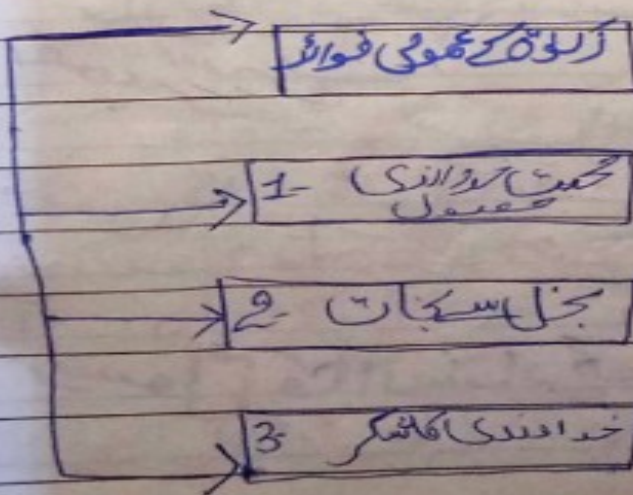 زکوٰۃ کے عمومی فوائد
1- محبت خداوندی کا حصول
2- بخل سے نجات
3- خداوندی کا شکر